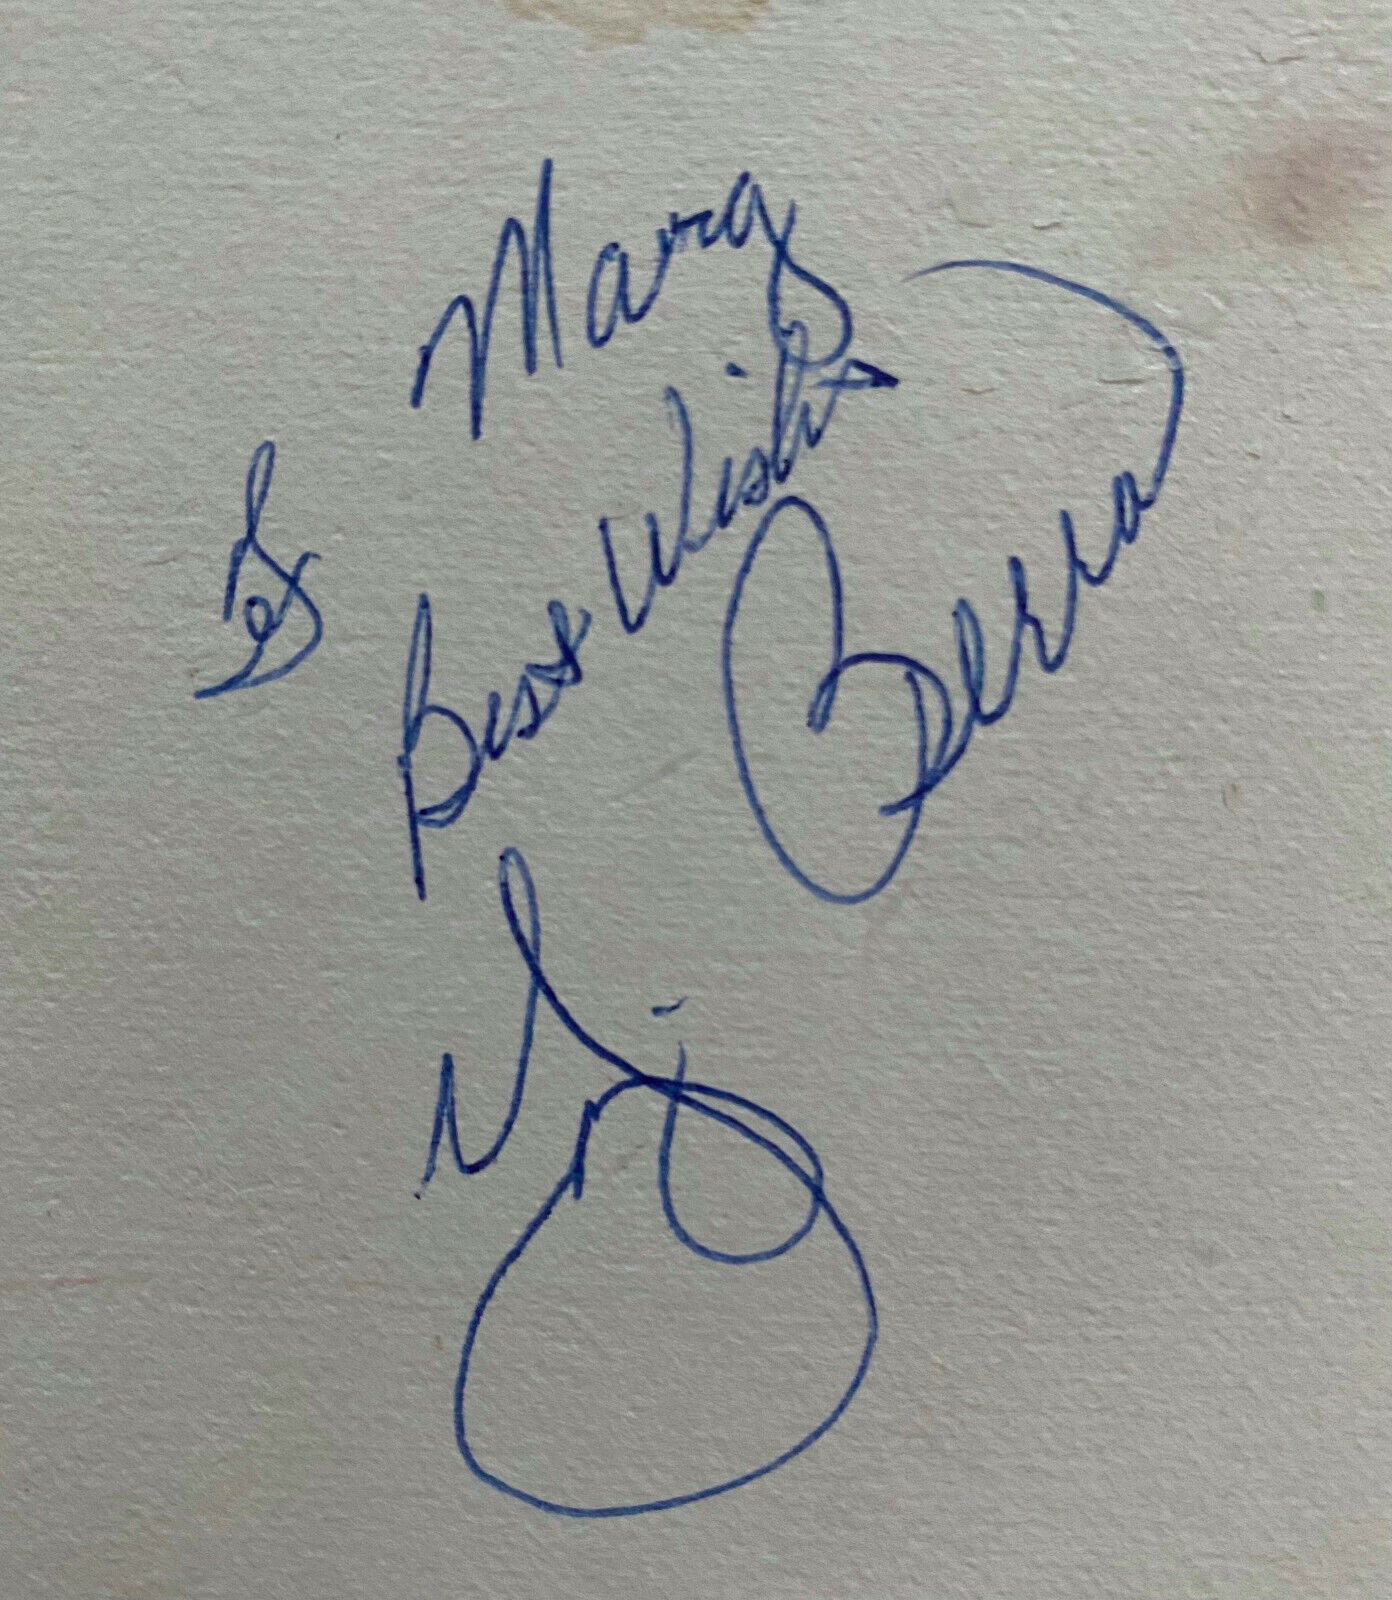 To Mary
Best Wishes
Yogi Berra